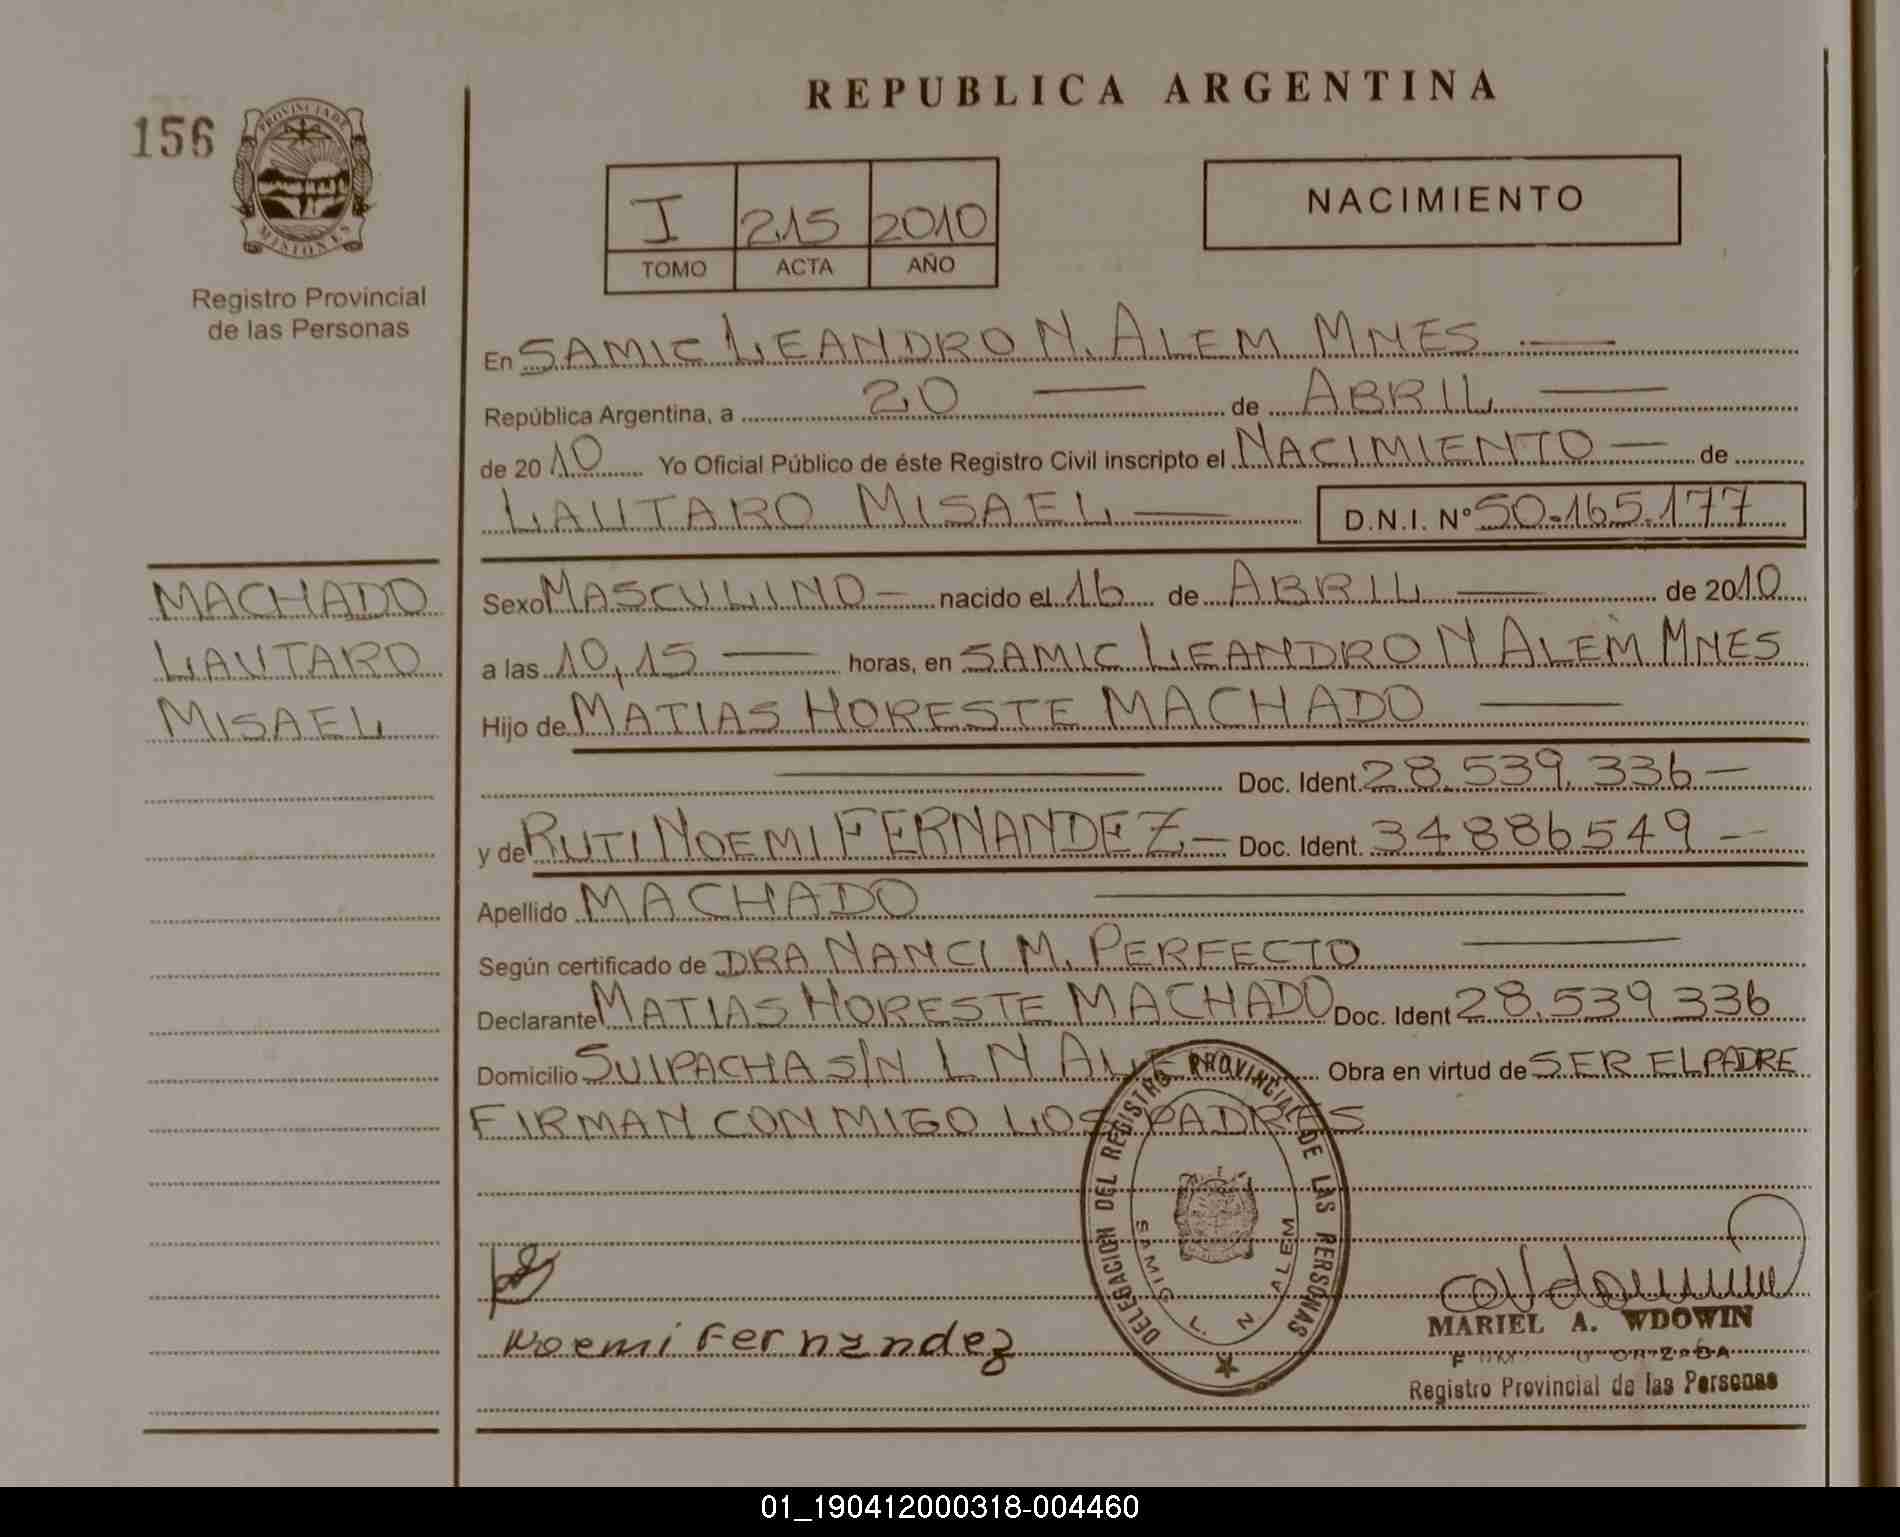 REPUBLICA ARGENTINA
156
PROVINCIA DE
MISIONES
Registro Provincial
de las Personas
I 215 2010
TOMO ACTA AÑO
NACIMIENTO
En SAMIC LEANDRO N. ALEM MNES
República Argentina, a 20 de ABRIL
de 2010 Yo Oficial Público de éste Registro Civil inscripto el NACIMIENTO de
LAUTARO MISAEL D.N.I. Nº 50.165.177
MACHADO
LAUTARO
MISAEL
Sexo MASCULINO nacido el 16 de ABRIL de 2010
a las 10,15 horas, en SAMIC LEANDRO N ALEM MNES
Hijo de MATIAS HORESTE MACHADO
Doc. Ident. 28.539.336
y de RUTI NOEMI FERNANDEZ Doc. Ident. 34886549
Apellido MACHADO
Según certificado de DRA NANCI M. PERFECTO
Declarante MATIAS HORESTE MACHADO Doc. Ident 28.539336
Domicilio SUIPACHA S/N L N ALEM Obra en virtud de SER EL PADRE
FIRMAN CONMIGO LOS PADRES
DELEGACION DEL REGISTRO PROVINCIAL DE LAS PERSONAS
SAMIC L. N ALEM
Noemi Fernandez
MARIEL A. WDOWIN
Registro Provincial de las Personas
01_190412000318-004460